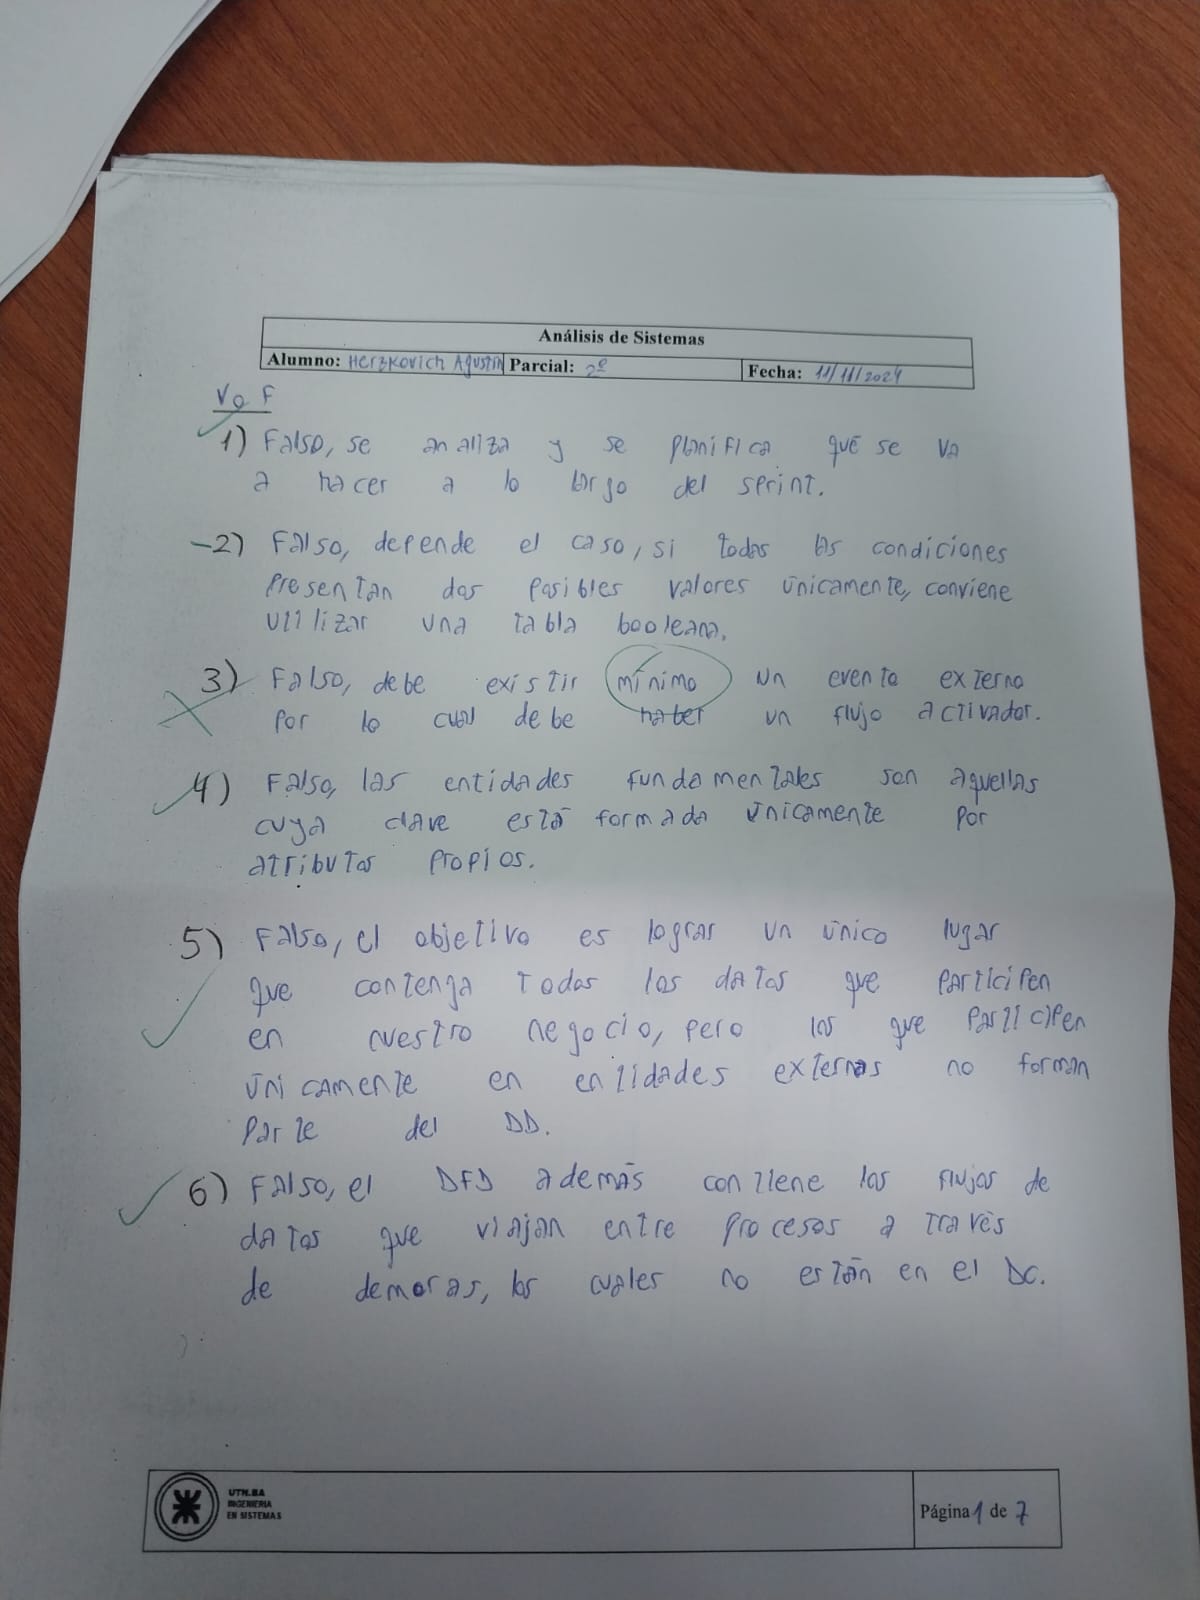 Análisis de Sistemas
Alumno: Herzkovich Agustín Parcial: 2º Fecha: 11/11/2024
V o F
1) Falso, se analiza y se planifica qué se va
a hacer a lo largo del sprint.
-2) Falso, depende el caso, si todas las condiciones
presentan dos posibles valores únicamente, conviene
utilizar una tabla booleana.
3) Falso, debe existir mínimo un evento externo
por lo cual debe haber un flujo activador.
4) Falso, las entidades fundamentales son aquellas
cuya clave está formada únicamente por
atributos propios.
5) Falso, el objetivo es lograr un único lugar
que contenga todos los datos que participen
en nuestro negocio, pero los que participen
únicamente en entidades externas no forman
parte del DD.
6) Falso, el DFD además contiene los flujos de
datos que viajan entre procesos a través
de demoras, los cuales no están en el DC.
UTN.BA
INGENIERIA
EN SISTEMAS
Página 1 de 7